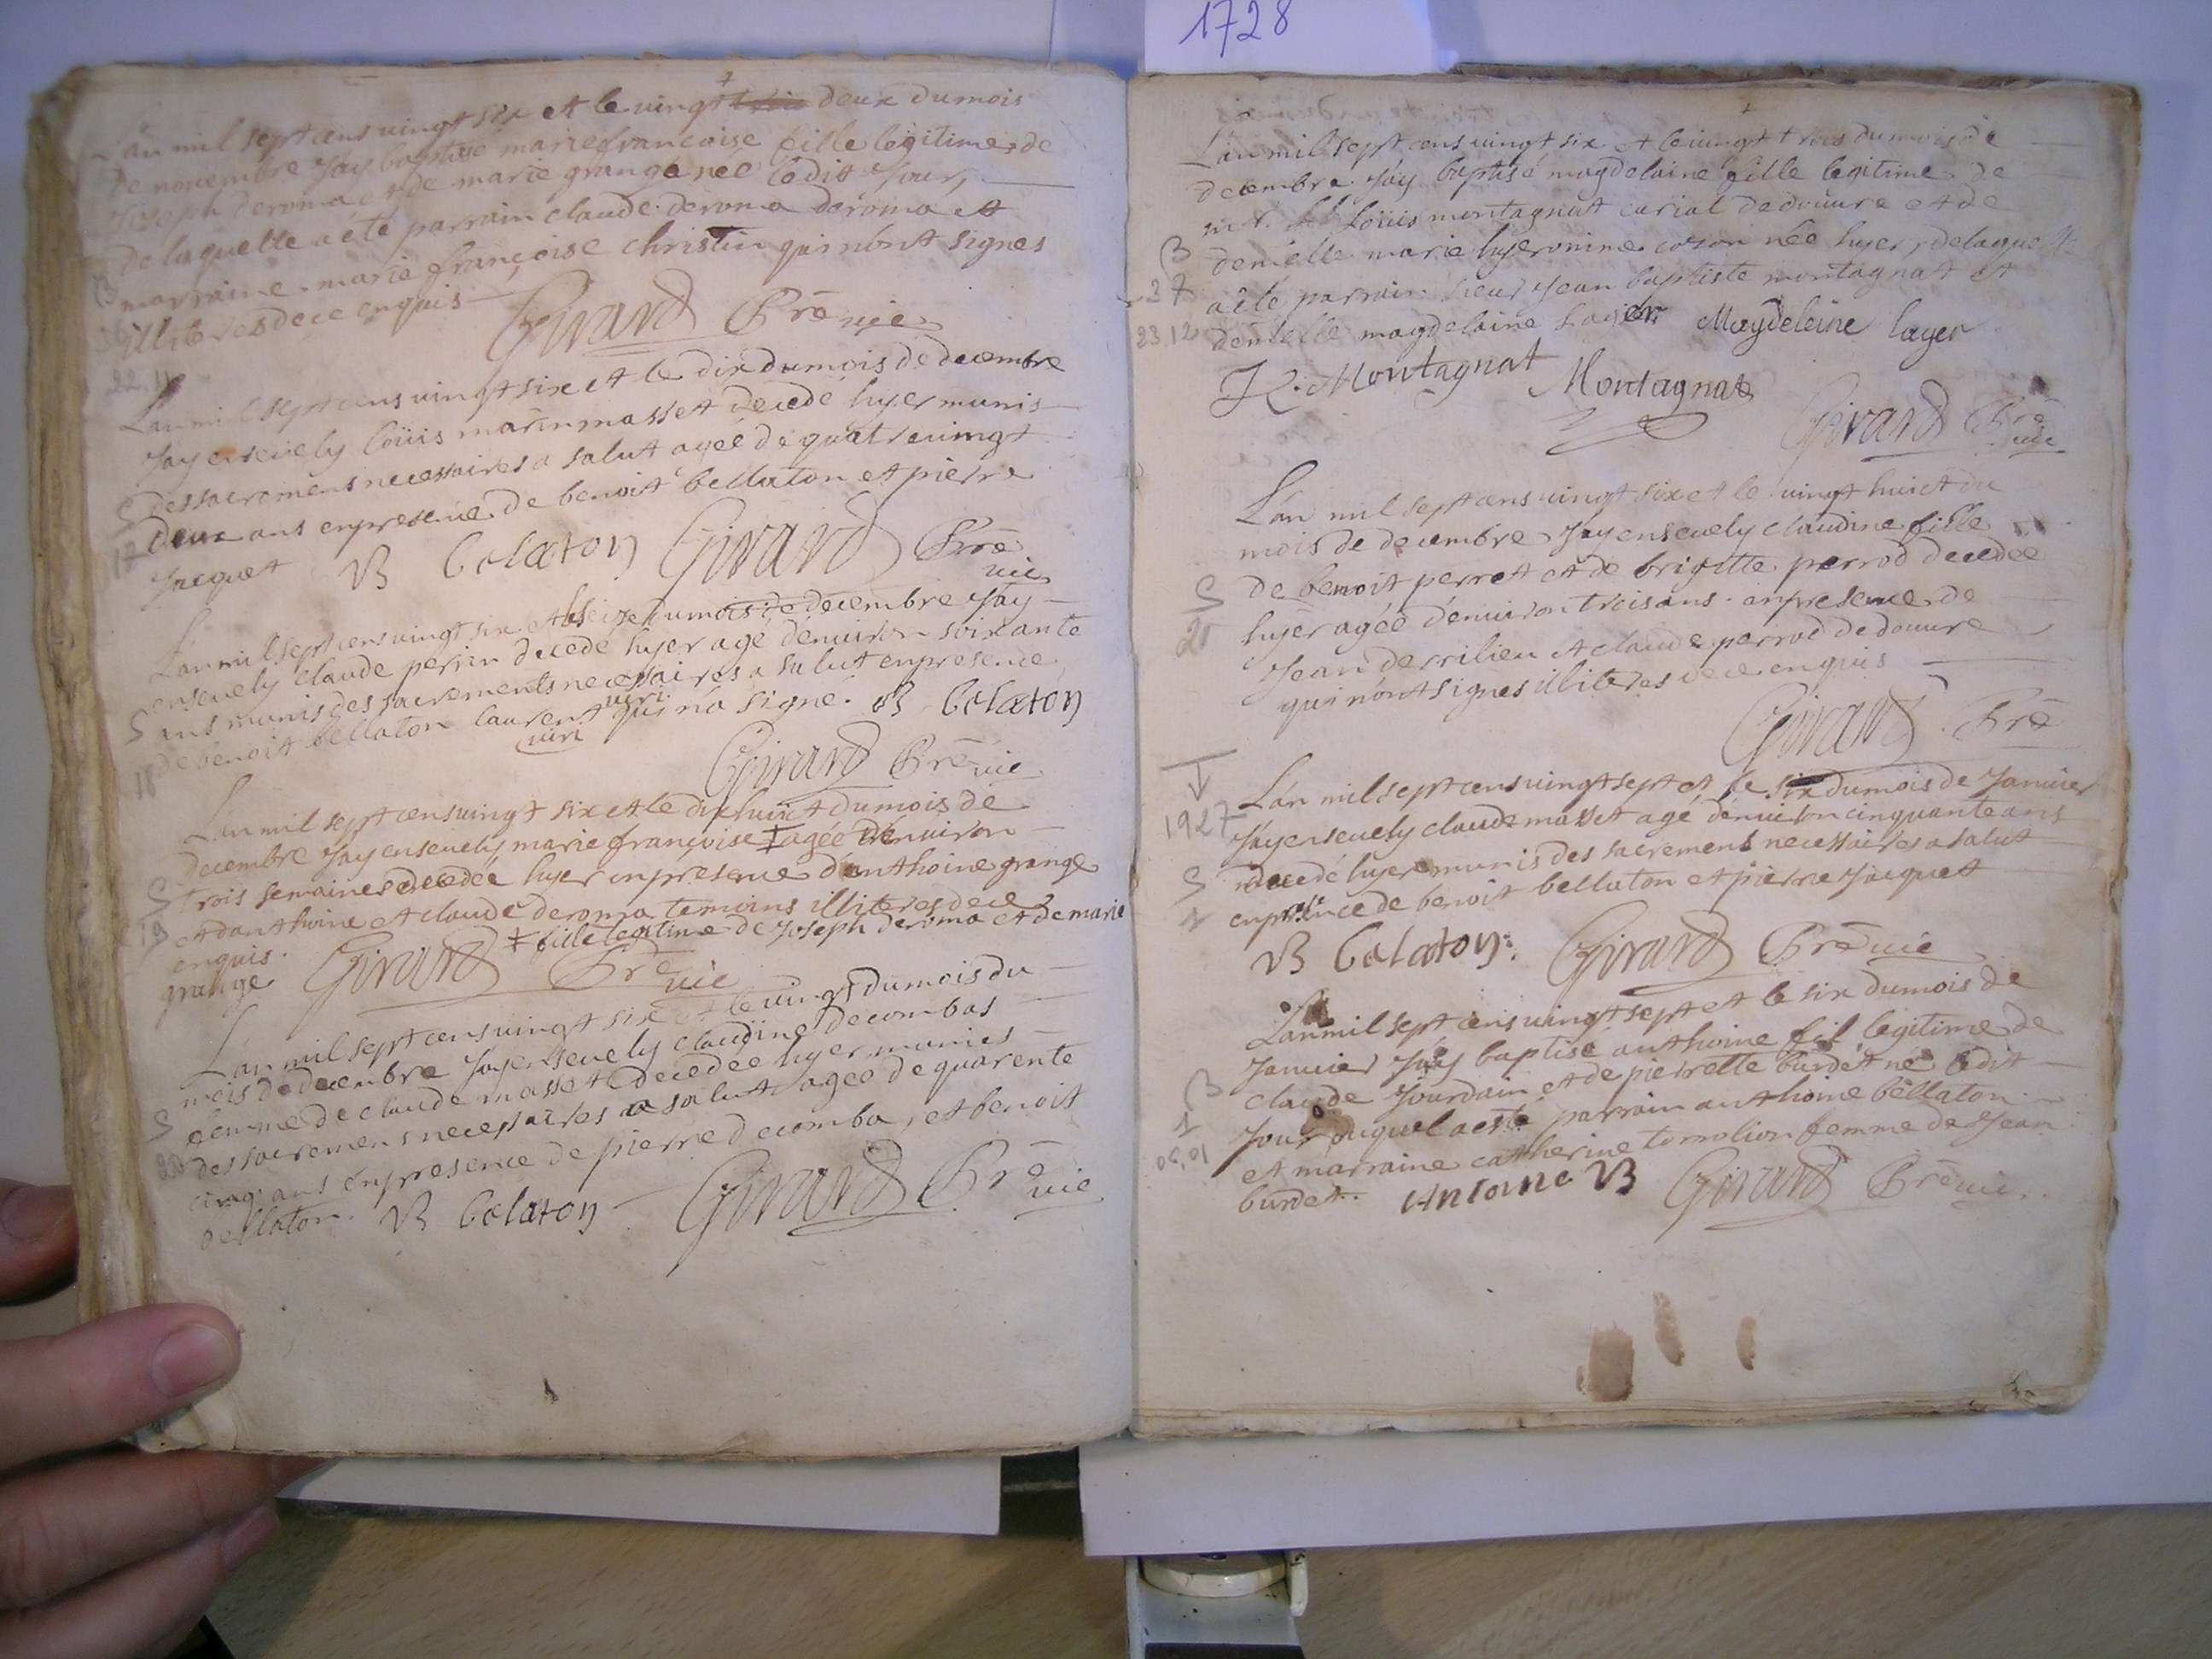 1728
L'an mil sept cens vingt six et le vingt deux du mois
de novembre J'ay baptisé marie françoise fille legitime de
Joseph deroma et de marie grange née ledit Jour,
de laquelle a été parrain claude deroma deroma et
B marraine marie françoise christin qui n'ont signes
illiteres de ce enquis
Girard Prê vic
22.11
L'an mil sept cens vingt six et le dix du mois de decembre
J'ay ensevely Loüis marin masset decedé hyer munis
S des sacremens necessaires a salut agée de quatre vingt
17 deux ans en presence de benoit bellaton et pierre
Jacquet B belaton Girard Prê vic
L'an mil sept cens vingt six et le seize du mois de decembre J'ay
ensevely claude perrin decedé hyer agé d'environ soixante
S ans munis des sacrements necessaires a salut en presence
18 de benoit bellaton laurent qui n'a signé. B belaton
Girard Prê vic
L'an mil sept cens vingt six et le dix huict du mois de
decembre J'ay ensevely marie françoise ‡ agée d'environ
S trois semaines decedée hyer en presence d'anthoine grange
19 et d'anthoine et claude deroma temoins illiteres de ce
enquis. ‡ fille legitime de Joseph deroma et de marie
grange Girard Prê vic
L'an mil sept cens vingt six et le vingt du mois du
mois de decembre J'ay ensevely claudine decombas
S femme de claude masset decedée hyer munies
20 des sacremens necessaires a salut agée de quarente
cinq ans en presence de pierre decomba, et benoit
bellaton. B belaton Girard Prê vic
L'an mil sept cens vingt six et le vingt trois du mois de
decembre J'ay baptisé magdelaine fille legitime de
Loüis montagnat curial de douvre et de
B demelle marie hyeronime cozon née hyer, de laquelle
27 a été parrain sieur Jean baptiste montagnat et
23.12 demelle magdelaine Layer Magdeleine layer
Montagnat Montagnat
Girard Prê vic
L'an mil sept cens vingt six et le vingt huict du
mois de decembre J'ay ensevely claudine fille
S de benoit perret et de brigitte perrod decedée
hyer agée d'environ trois ans en presence de
Jean derrilieu et claude perrod de douvre
qui n'ont signes illiteres de ce enquis
Girard Prê
L'an mil sept cens vingt sept et le six du mois de Janvier
1927 J'ay ensevely claude masset agé d'environ cinquante ans
S decedé hyer munis des sacremens necessaires a salut
1 en presence de benoit bellaton et pierre Jacquet
B belaton: Girard Prê vic
L'an mil sept cens vingt sept et le six du mois de
Janvier J'ay baptisé anthoine fil legitime de
B claude Jourdain et de pierrette burdet né ledit
1 Jour duquel a esté parrain anthoine bellaton
06.01 et marraine catherine tomolion femme de Jean
burdet. Antoine B Girard Prê vic.